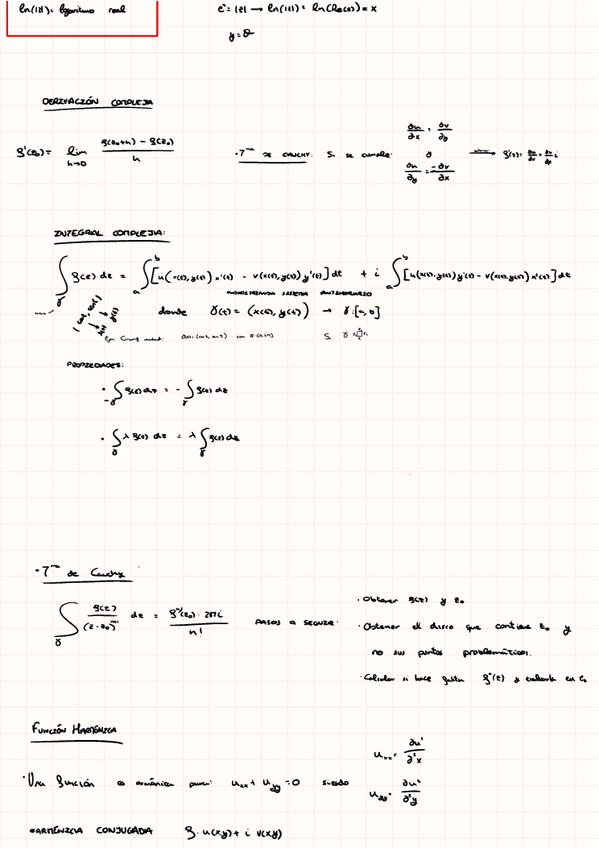 ln(|z|): logaritmo real
eˣ = |z| → ln(|z|) = ln(Re(z)) = x
y = θ
DERIVACIÓN COMPLEJA
f'(z₀) = lim h→0 f(z₀+h) - f(z₀) / h
· Tᵐᵃ DE CAUCHY. Si se cumple: ∂u/∂x = ∂v/∂y y ∂u/∂y = -∂v/∂x → f'(z) = ∂u/∂x + ∂v/∂x i
INTEGRAL COMPLEJA:
∫γ f(z) dz = ∫ₐᵇ [u(x(t), y(t)) x'(t) - v(x(t), y(t)) y'(t)] dt + i ∫ₐᵇ [u(x(t), y(t)) y'(t) - v(x(t), y(t)) x'(t)] dt
SENTIDO ANTIHORARIO
donde γ(t) = (x(t), y(t)) → γ: [a, b]
PROPIEDADES:
· ∫-γ f(z) dz = - ∫γ f(z) dz
· ∫γ λ f(z) dz = λ ∫γ f(z) dz
· Tᵐᵃ de Cauchy
∫γ f(z) / (z - z₀)ⁿ⁺¹ dz = fⁿ(z₀) · 2πi / n!
PASOS A SEGUIR:
· Obtener f(z) y z₀
· Obtener el disco que contiene z₀ y
no sus puntos problemáticos.
· Calcular si hace falta fⁿ(z) y evaluarla en z₀
FUNCIÓN HARMÓNICA
· Una función es armónica para: uₓₓ + u_yy = 0 siendo
uₓₓ = ∂u²/∂²x
u_yy = ∂u²/∂²y
ARMÓNICA CONJUGADA f = u(x,y) + i v(x,y)